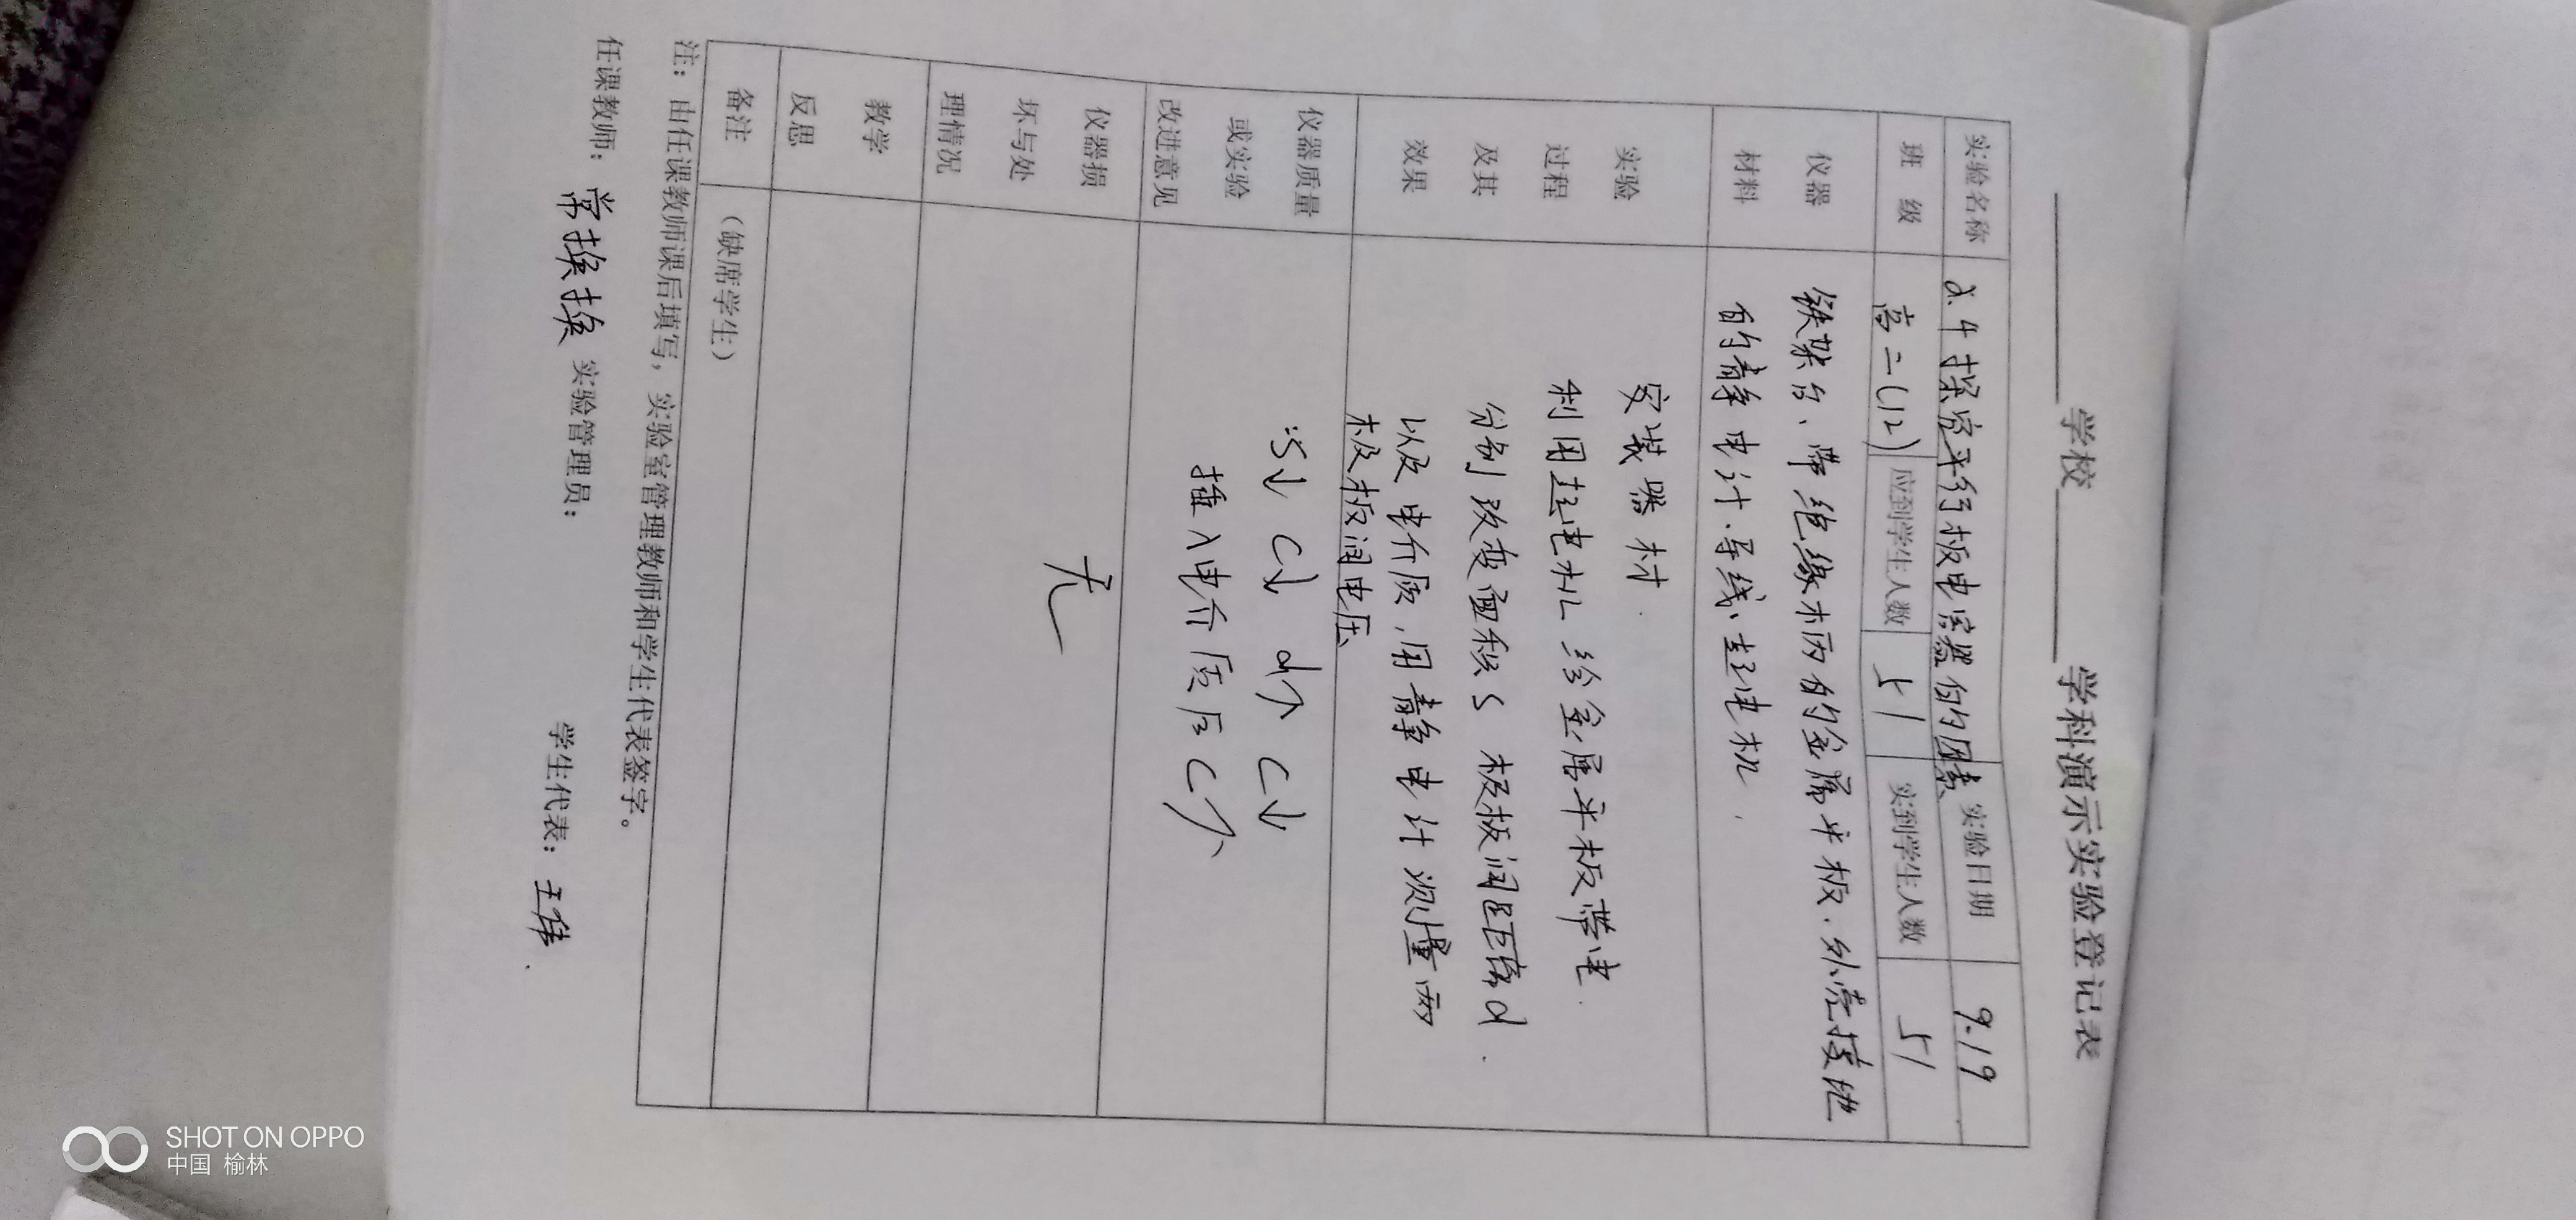 学校 学科演示实验登记表
实验名称 2.4 探究平行板电容器的因素 实验日期 9.19
班 级 高二(12) 应到学生人数 51 实到学生人数 51
仪器 铁架台、带绝缘柄的金属平板、外壳接地
材料 的静电计、导线、起电机.
实验 安装器材.
过程 利用起电机给金属平板带电.
及其 分别改变面积S 极板间距离d.
效果 以及电介质,用静电计测量两
极极板间电压
仪器质量 S↓ C↓ d↗ C↓
或实验
改进意见 插入电介质后C↗
仪器损
坏与处 无
理情况
教学
反思
备注 (缺席学生)
注:由任课教师课后填写,实验室管理教师和学生代表签字。
任课教师: 常换换 实验管理员: 学生代表: